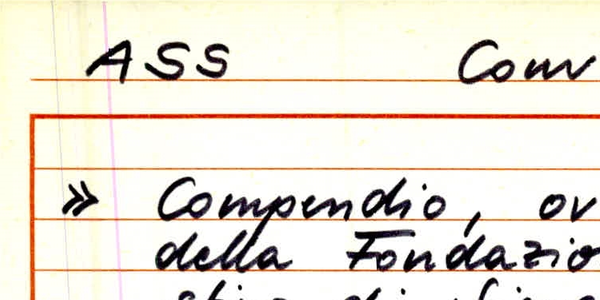 ASS Conv
» Compendio, ov
della Fondazio